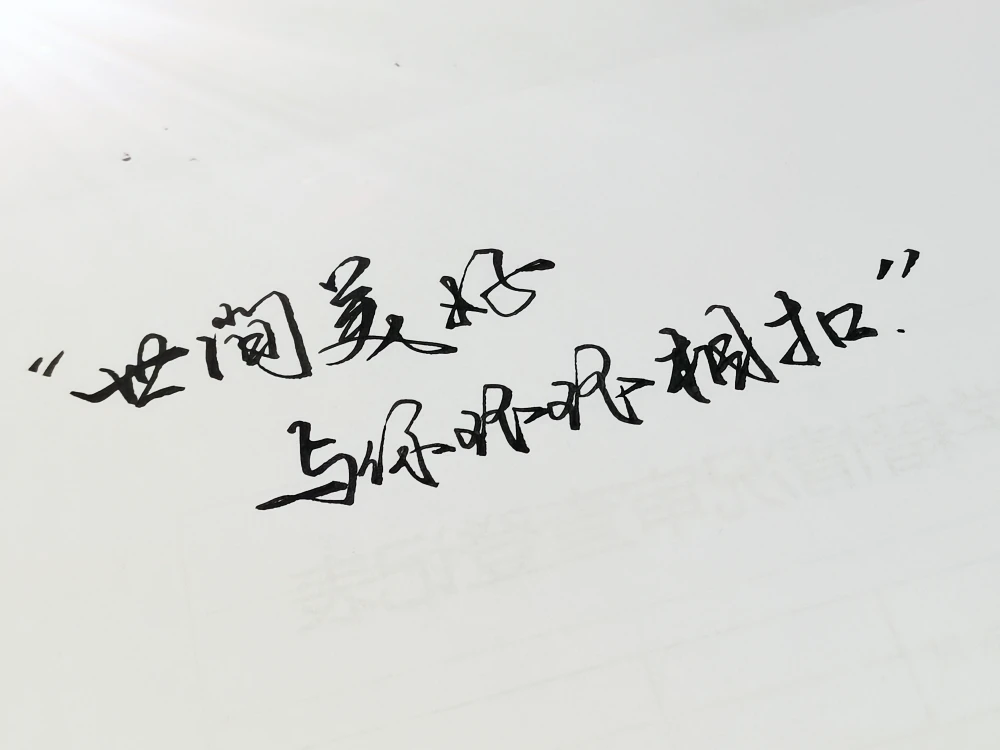 “世间美好
与你环环相扣.”